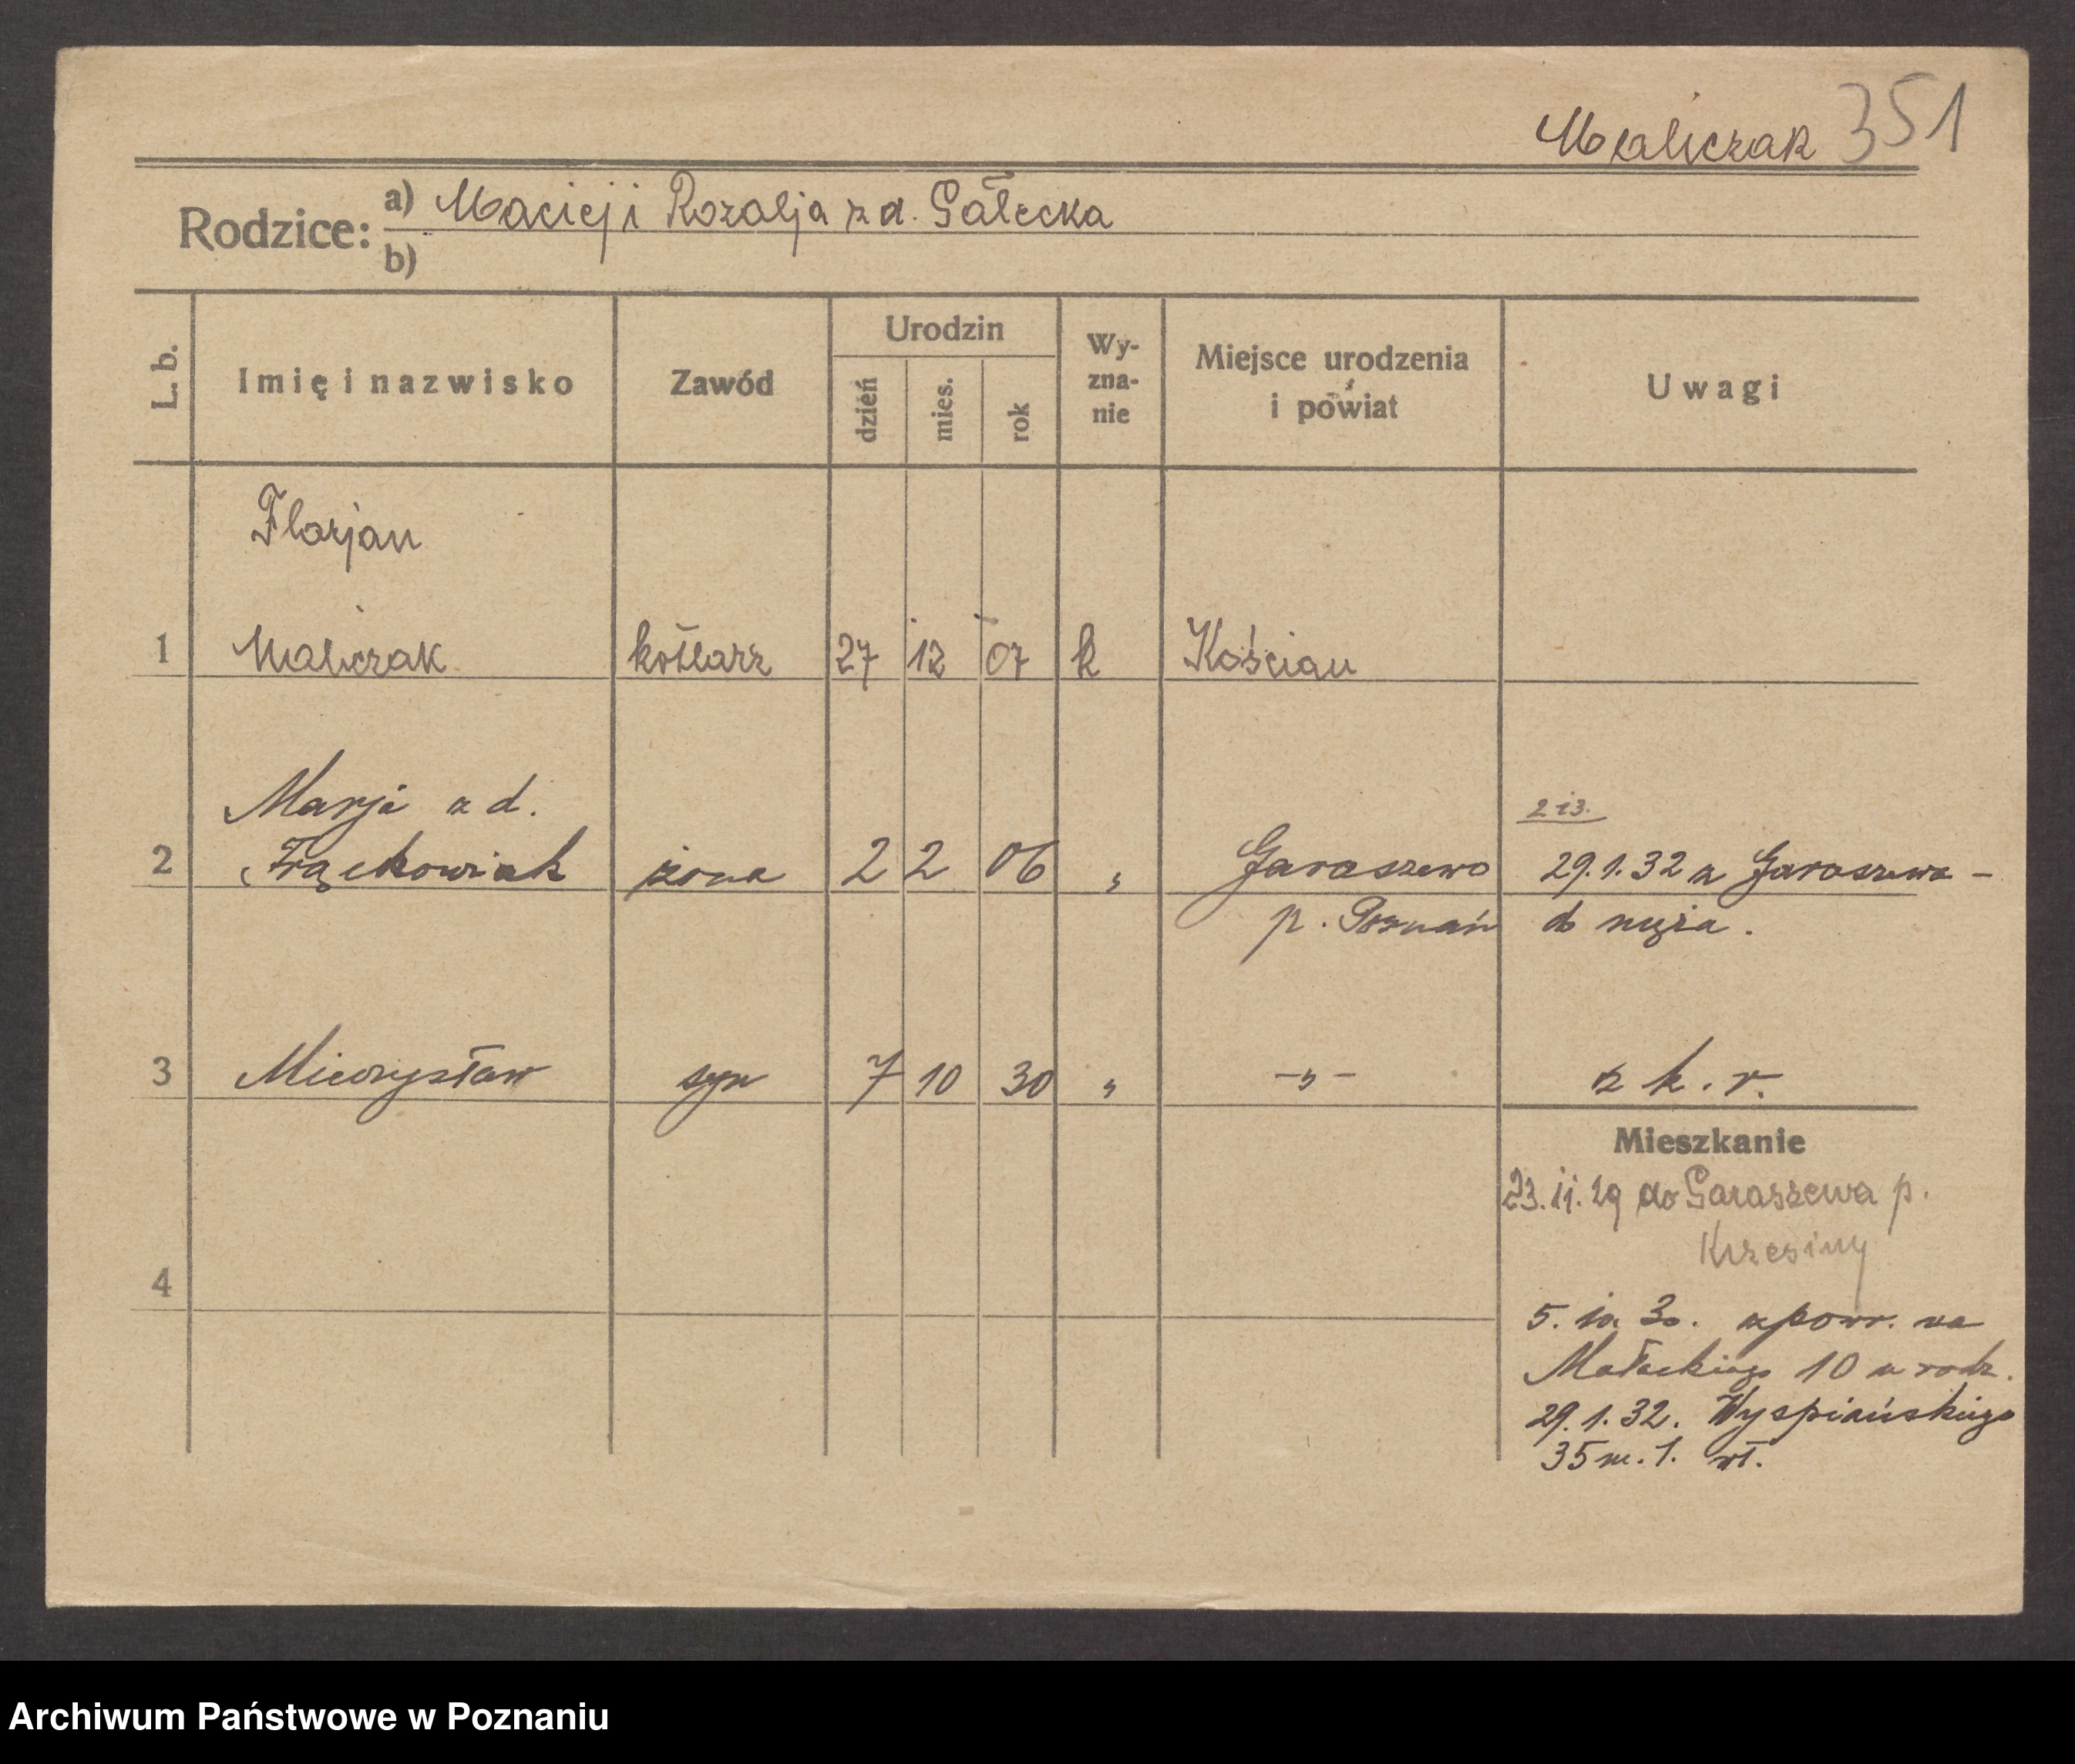 Maliczak 351
Rodzice: a) Maciej i Rozalja z d. Gałecka
b)
L. b. Imię i nazwisko Zawód Urodzin dzień mies. rok Wy-zna-nie Miejsce urodzenia i powiat Uwagi
Florjan
1 Maliczak kotlarz 27 12 07 k Kościan
Marja z d. 2 i 3.
2 Frąckowiak żona 2 2 06 " Garaszewo 29.1.32 z Garaszewa -
p. Poznań do męża.
3 Mieczysław syn 7 10 30 " -"- z k. r.
Mieszkanie
23.11.29 do Garaszewa p.
Krzesiny
4
5. 10. 30. z powr. na
Małeckiego 10 u rodz.
29.1.32. Wyspiańskiego
35 m. 1. wł.
Archiwum Państwowe w Poznaniu